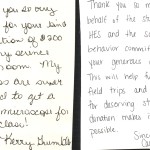 you so very
for your kind
tion of $200
y science
room. My
s are super
d to get a
microscope for
class!
Kerry
Thank you so m
behalf of the st
HES and the sc
behavior commit
your generous
This will help fu
field trips and
for deserving st
donation makes i
possible.
Sinc